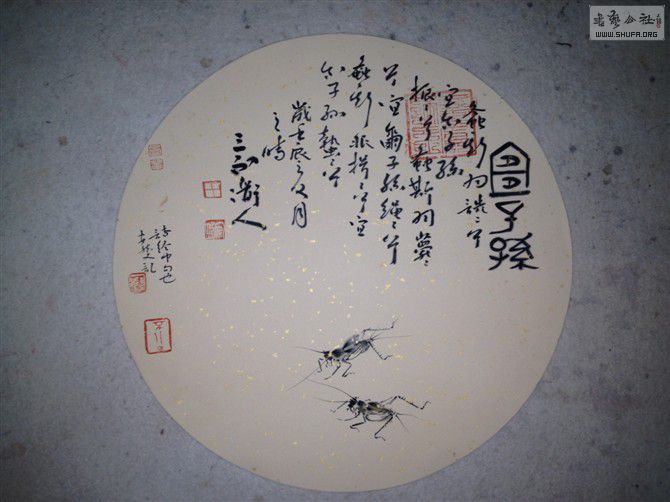 書藝公社
WWW.SHUFA.ORG
宜子孫
螽斯羽詵〻兮
宜爾子孫
振〻兮螽斯羽薨〻
兮宜爾子孫繩〻兮
螽斯揖〻兮宜
爾子孫蟄兮
歲壬辰之八月
之時
詩經中句也
人記